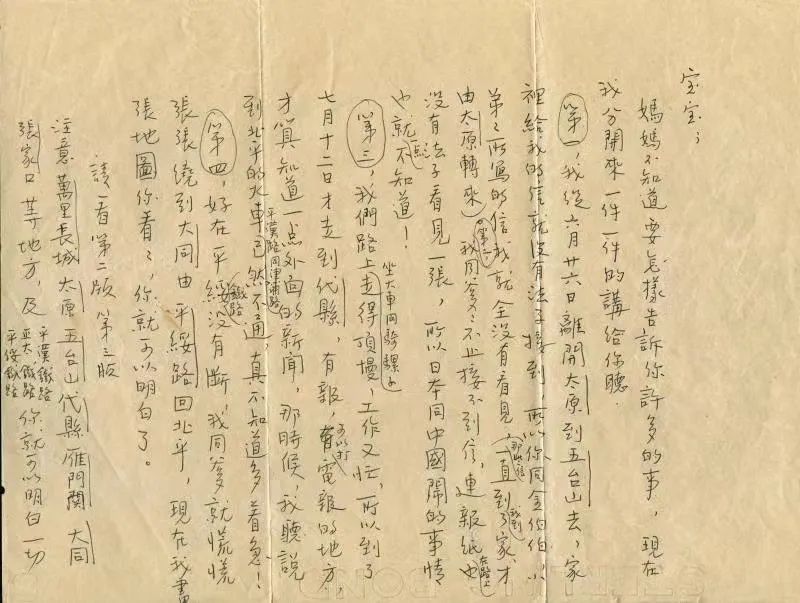 宝宝：
媽媽不知道要怎樣告訴你許多的事，現在
我分開來一件一件的講給你聽．
第一，我從六月廿六日離開太原到五台山去，家
裡給我的信就沒有法子接到，所以你同金伯伯、小
弟弟所寫的信我就全沒有看見（那些信一直到我到了家，才
由太原轉來）第二我同爹爹不止接不到信，連報紙也在路上
沒有法子看見一張，所以日本同中國鬧的事情
也就不知道！
第三，我們路上坐大車同騎騾子走得頂慢，工作又忙，所以到了
七月十二日才走到代縣，有報，可以打電報的地方，
才算知道一点外面的新聞，那時候，我聽說
到北平的火車平漢路同津浦路已然不通，真不知道多着急！
第四，好在平綏鐵路沒有斷，我同爹爹就慌慌
張張繞到大同由平綏路回北平，現在我畫
張地圖你看了，你就可以明白了。
請看第二版 第三版
注意萬里長城 太原 五台山 代縣 雁門關 大同
張家口等地方，及平漢鐵路 正太鐵路 平綏鐵路 你就可以明白一切